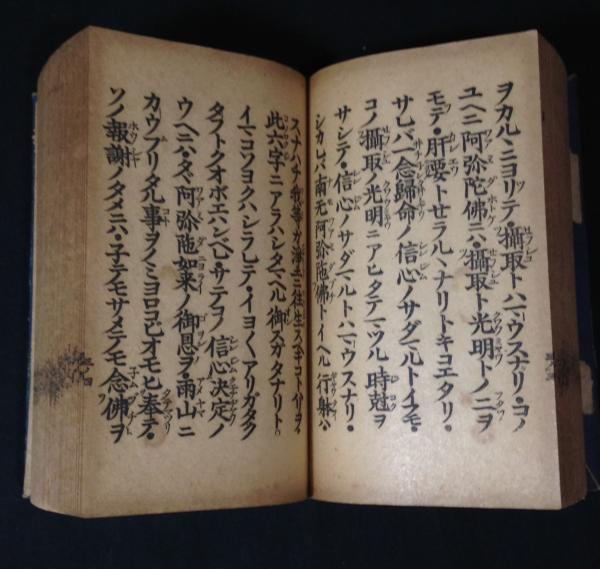 ヲカルヽニヨリテ・攝取トハマウスナリ・コノ
ユヘニ阿弥陀佛ニハ・攝取ト光明トノ二ヲ
モテ・肝要トセラルヽナリトキコエタリ・
サレバ一念歸命ノ信心ノサダマルトイフモ・
コノ攝取ノ光明ニアヒタテマツル時尅ヲ
サシテ・信心ノサダマルトハマウスナリ・
シカレバ南无阿弥陁佛トイヘル行躰ハ・
スナハチ我等ガ淨土ニ往生スベキコトハリヲ・
此六字ニアラハシタマヘル御スガタナリト・
イマコソヨクハシラレテ・イヨ〱アリガタク
タフトクオボエハンベレ・サテコノ信心決定ノ
ウヘニハ・タヾ阿弥陁如来ノ御恩ヲ雨山ニ
カウブリタル事ヲノミヨロコビオモヒ奉テ・
ソノ報謝ノタメニハ・子テモサメテモ念佛ヲ